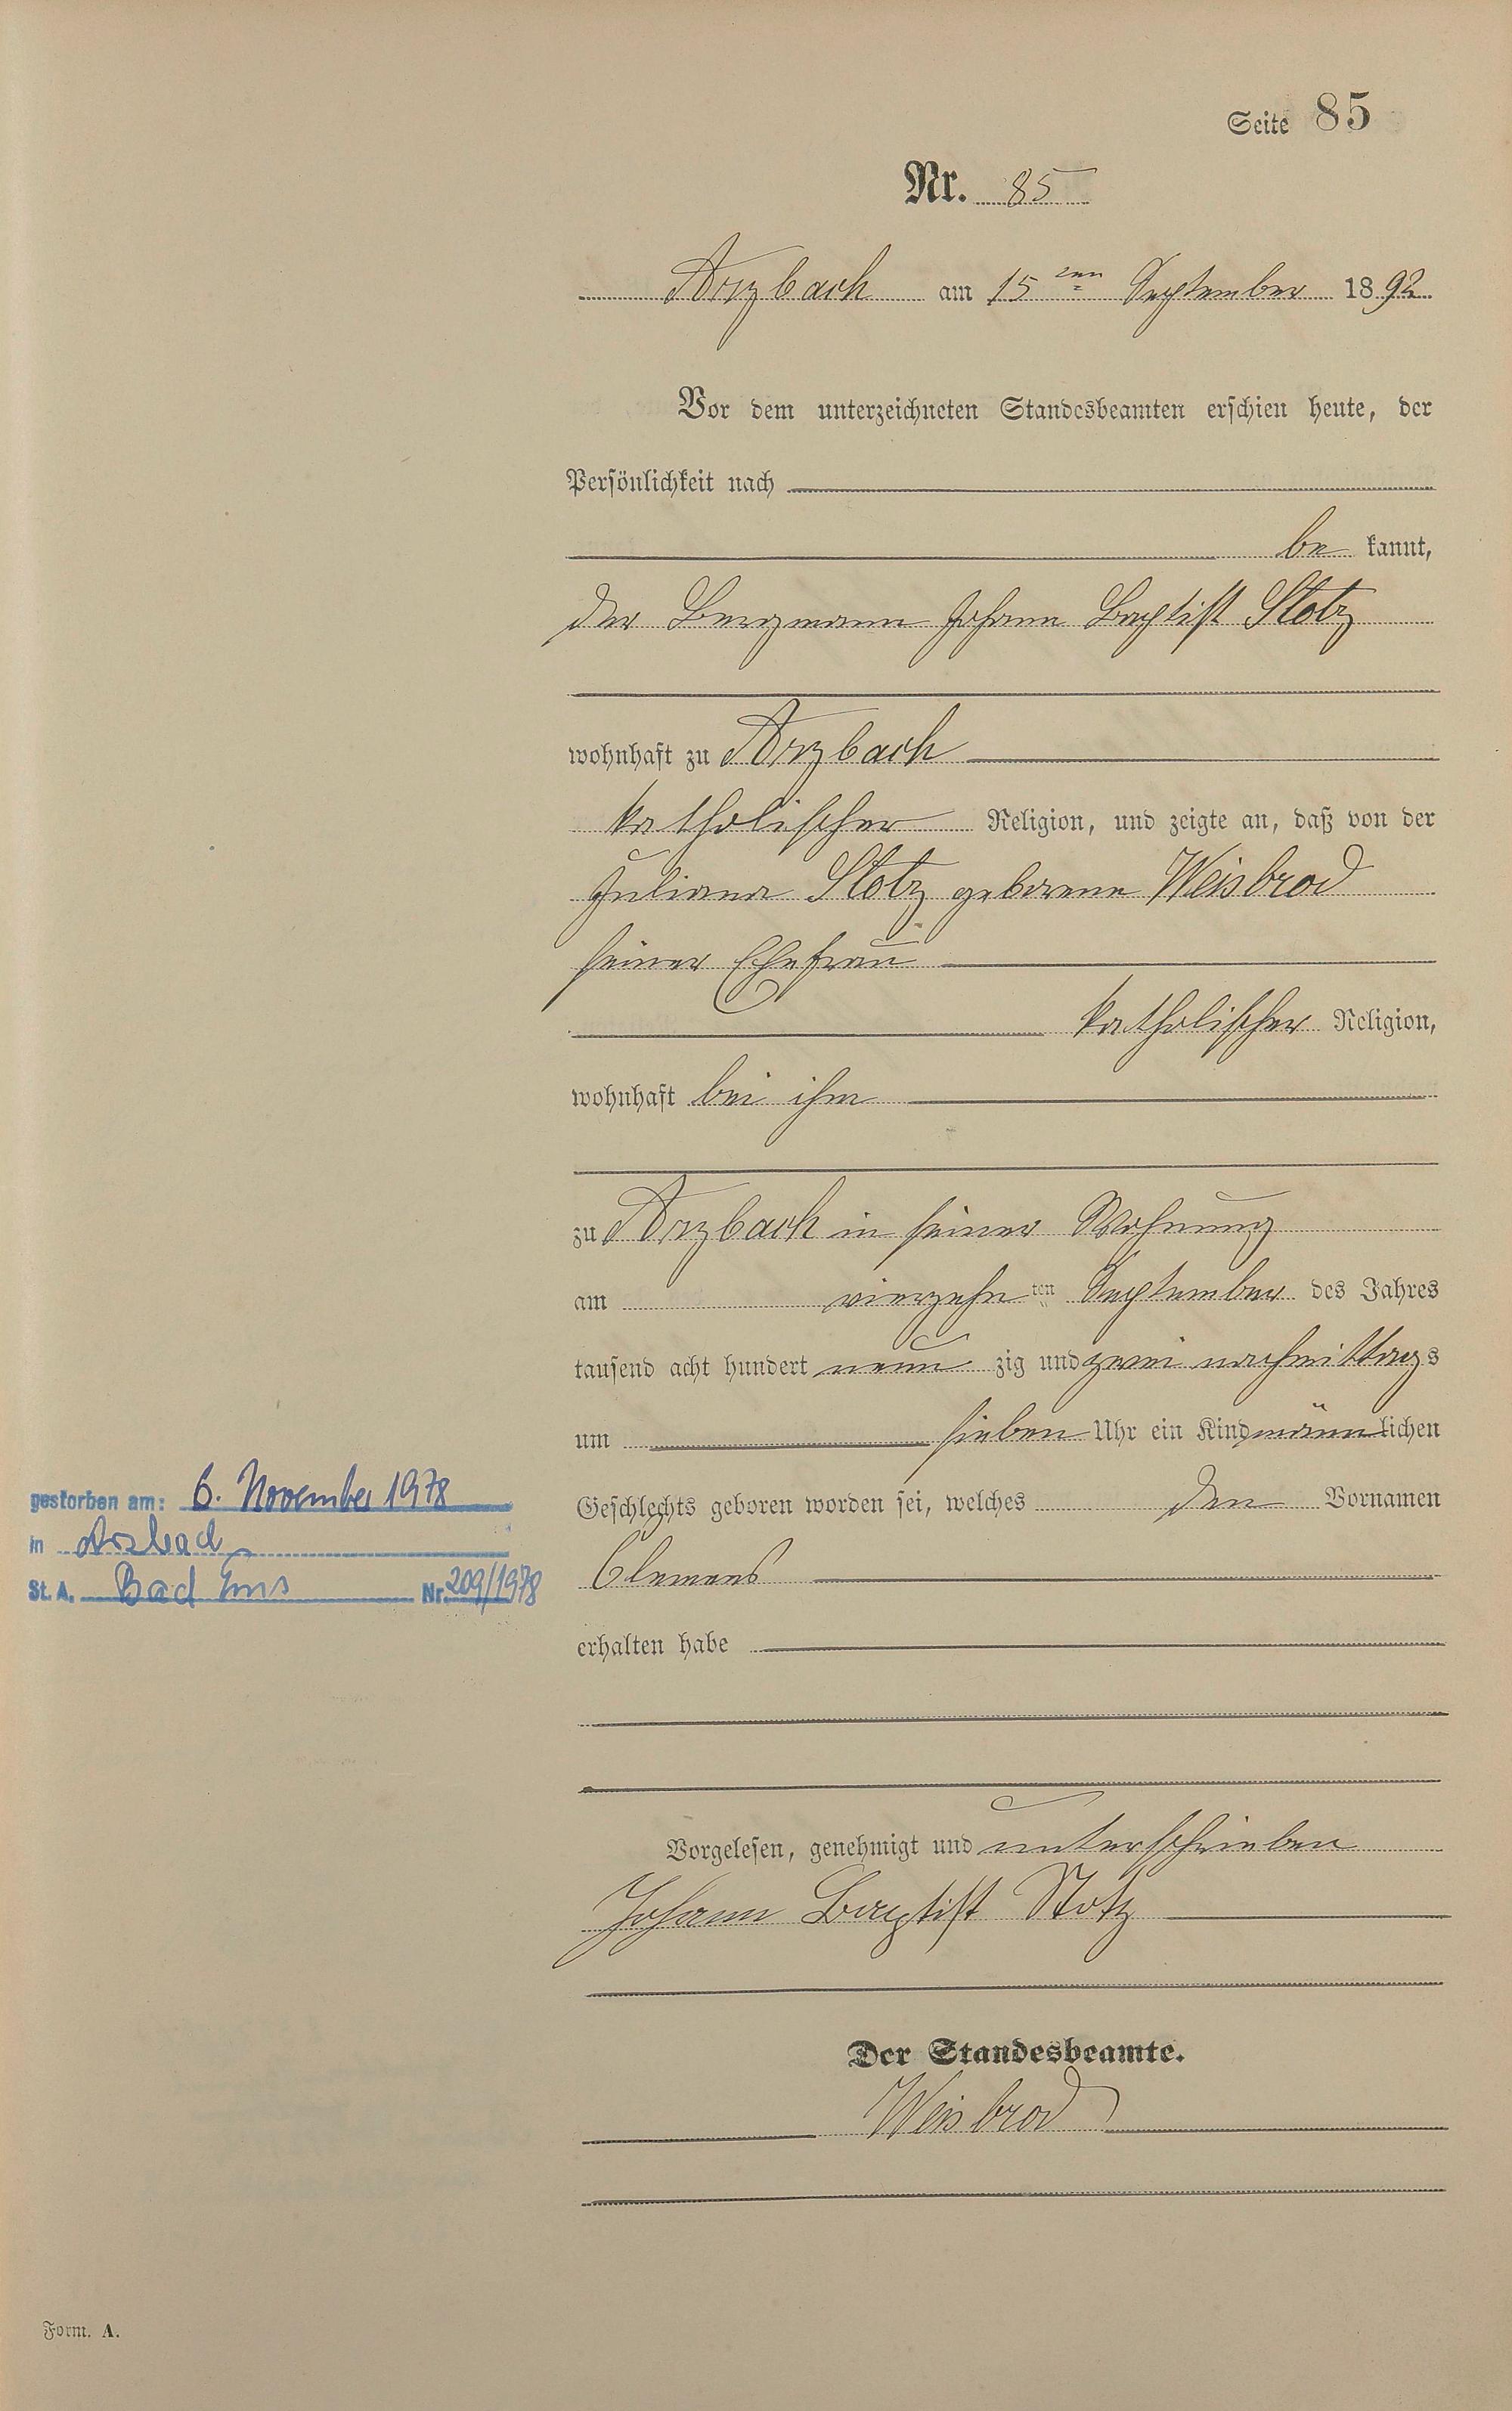 Seite 85
Nr. 85
Arzbach am 15ten September 1892
Vor dem unterzeichneten Standesbeamten erschien heute, der
Persönlichkeit nach
be kannt,
der Bergmann Johann Baptist Stotz
wohnhaft zu Arzbach
katholischer Religion, und zeigte an, daß von der
Juliana Stotz geborene Weisbrod
seiner Ehefrau
katholischer Religion,
wohnhaft bei ihm
zu Arzbach in seiner Wohnung
am vierzehn ten September des Jahres
tausend acht hundert neun zig und zwei nachmittags
um sieben Uhr ein Kind männlichen
Geschlechts geboren worden sei, welches den Vornamen
Clemens
erhalten habe
Vorgelesen, genehmigt und unterschrieben
Johann Baptist Stotz
Der Standesbeamte.
Weisbrod
gestorben am: 6. November 1978
in Arzbach
St. A. Bad Ems Nr. 209/1978
Form. A.